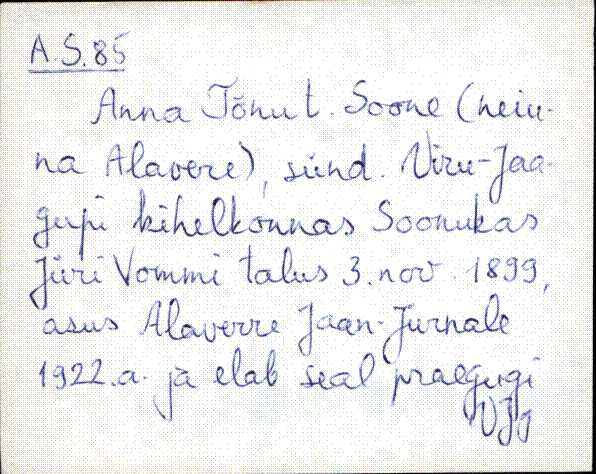 A.S.85
Anna Tõnu t. Soone (neiu-
na Alavere), sünd. Viru-Jaa-
gupi kihelkonnas Soonukas
Jüri Vommi talus 3. nov. 1899,
asus Alaverre Jaan-Jurnale
1922.a. ja elab seal praegugi